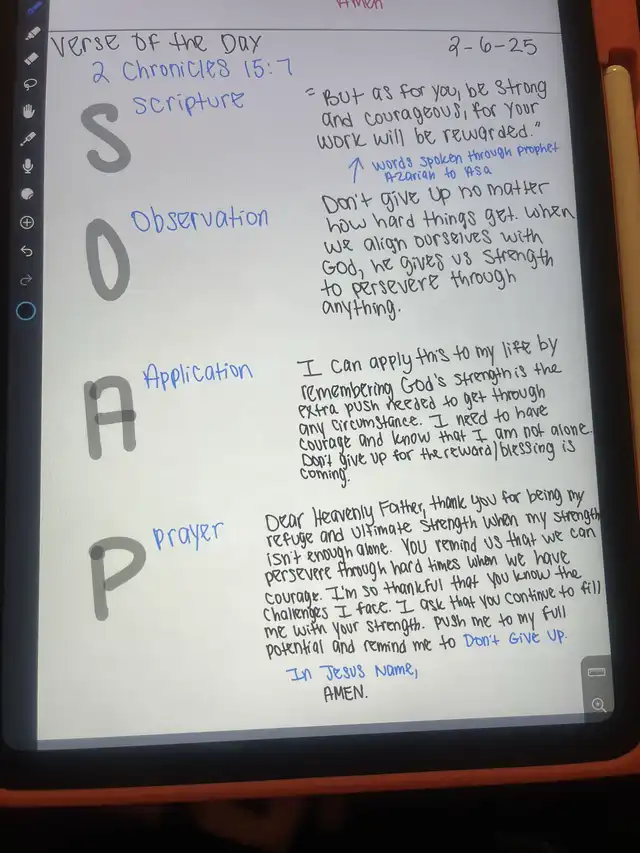 Amen
Verse of the Day
2-6-25
2 Chronicles 15:7
S
Scripture
"But as for you, be strong
and courageous, for your
work will be rewarded."
↑ words spoken through prophet
Azariah to Asa
O
Observation
Don't give up no matter
how hard things get. When
we align ourselves with
God, he gives us strength
to persevere through
anything.
A
Application
I can apply this to my life by
remembering God's strength is the
extra push needed to get through
any circumstance. I need to have
courage and know that I am not alone.
Don't give up for the reward/blessing is
coming.
P
prayer
Dear Heavenly Father, thank you for being my
refuge and ultimate strength when my strength
isn't enough alone. You remind us that we can
persevere through hard times when we have
courage. I'm so thankful that you know the
challenges I face. I ask that you continue to fill
me with your strength. Push me to my full
potential and remind me to Don't Give Up.
In Jesus Name,
AMEN.